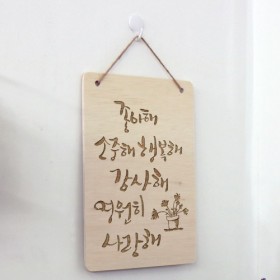 좋아해
소중해 행복해
감사해
영원히
사랑해